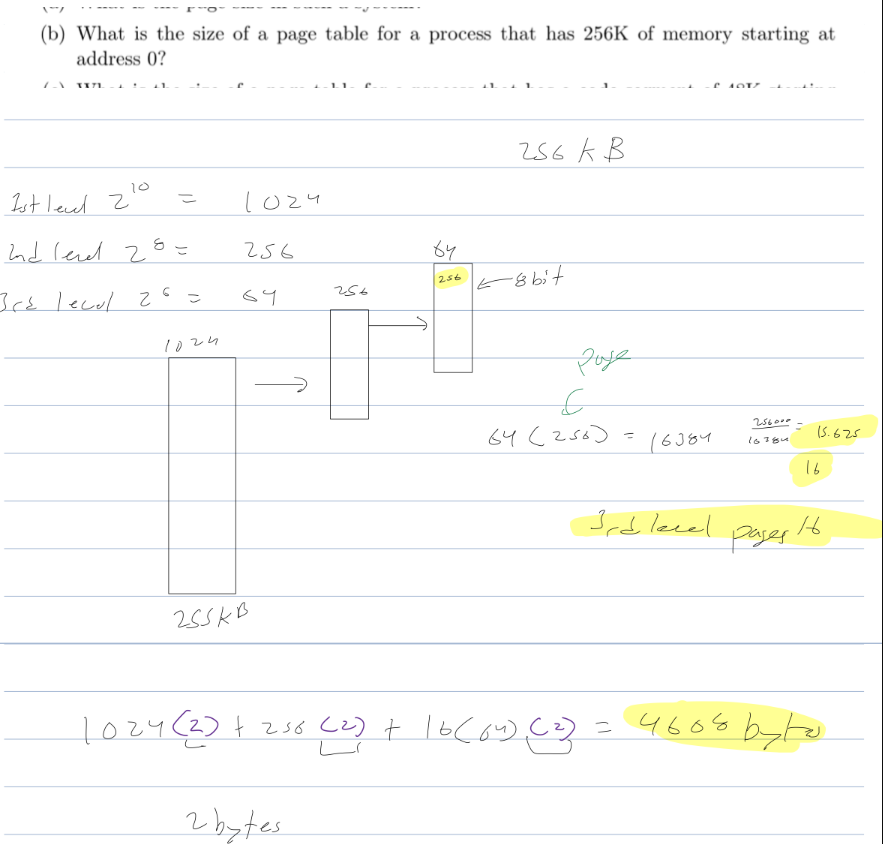 (b) What is the size of a page table for a process that has 256K of memory starting at
address 0?
256 kB
1st level 2^10 = 1024
2nd level 2^8 = 256
3rd level 2^6 = 64
64
256
8 bit
256
1024
page
64 (256) = 16384
256000
16384
= 15.625
16
3rd level pages 16
255kB
1024(2) + 256 (2) + 16(64)(2) = 4608 bytes
2 bytes